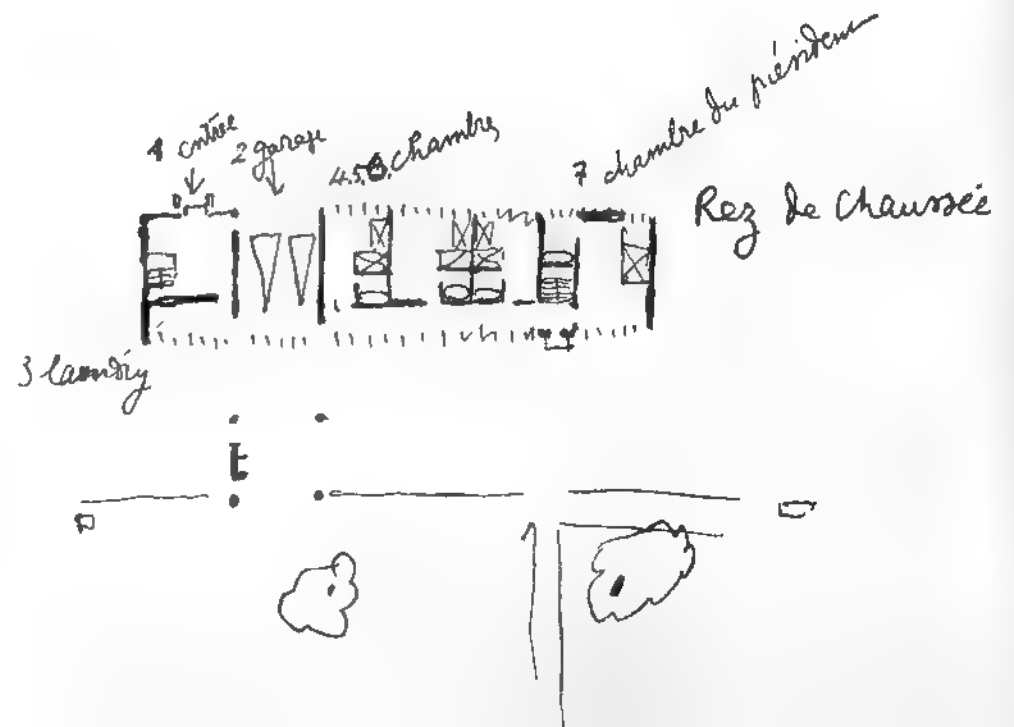 1 entrée
2 garage
4.5.6. chambres
7 chambre du président
Rez de Chaussée
3 laundry